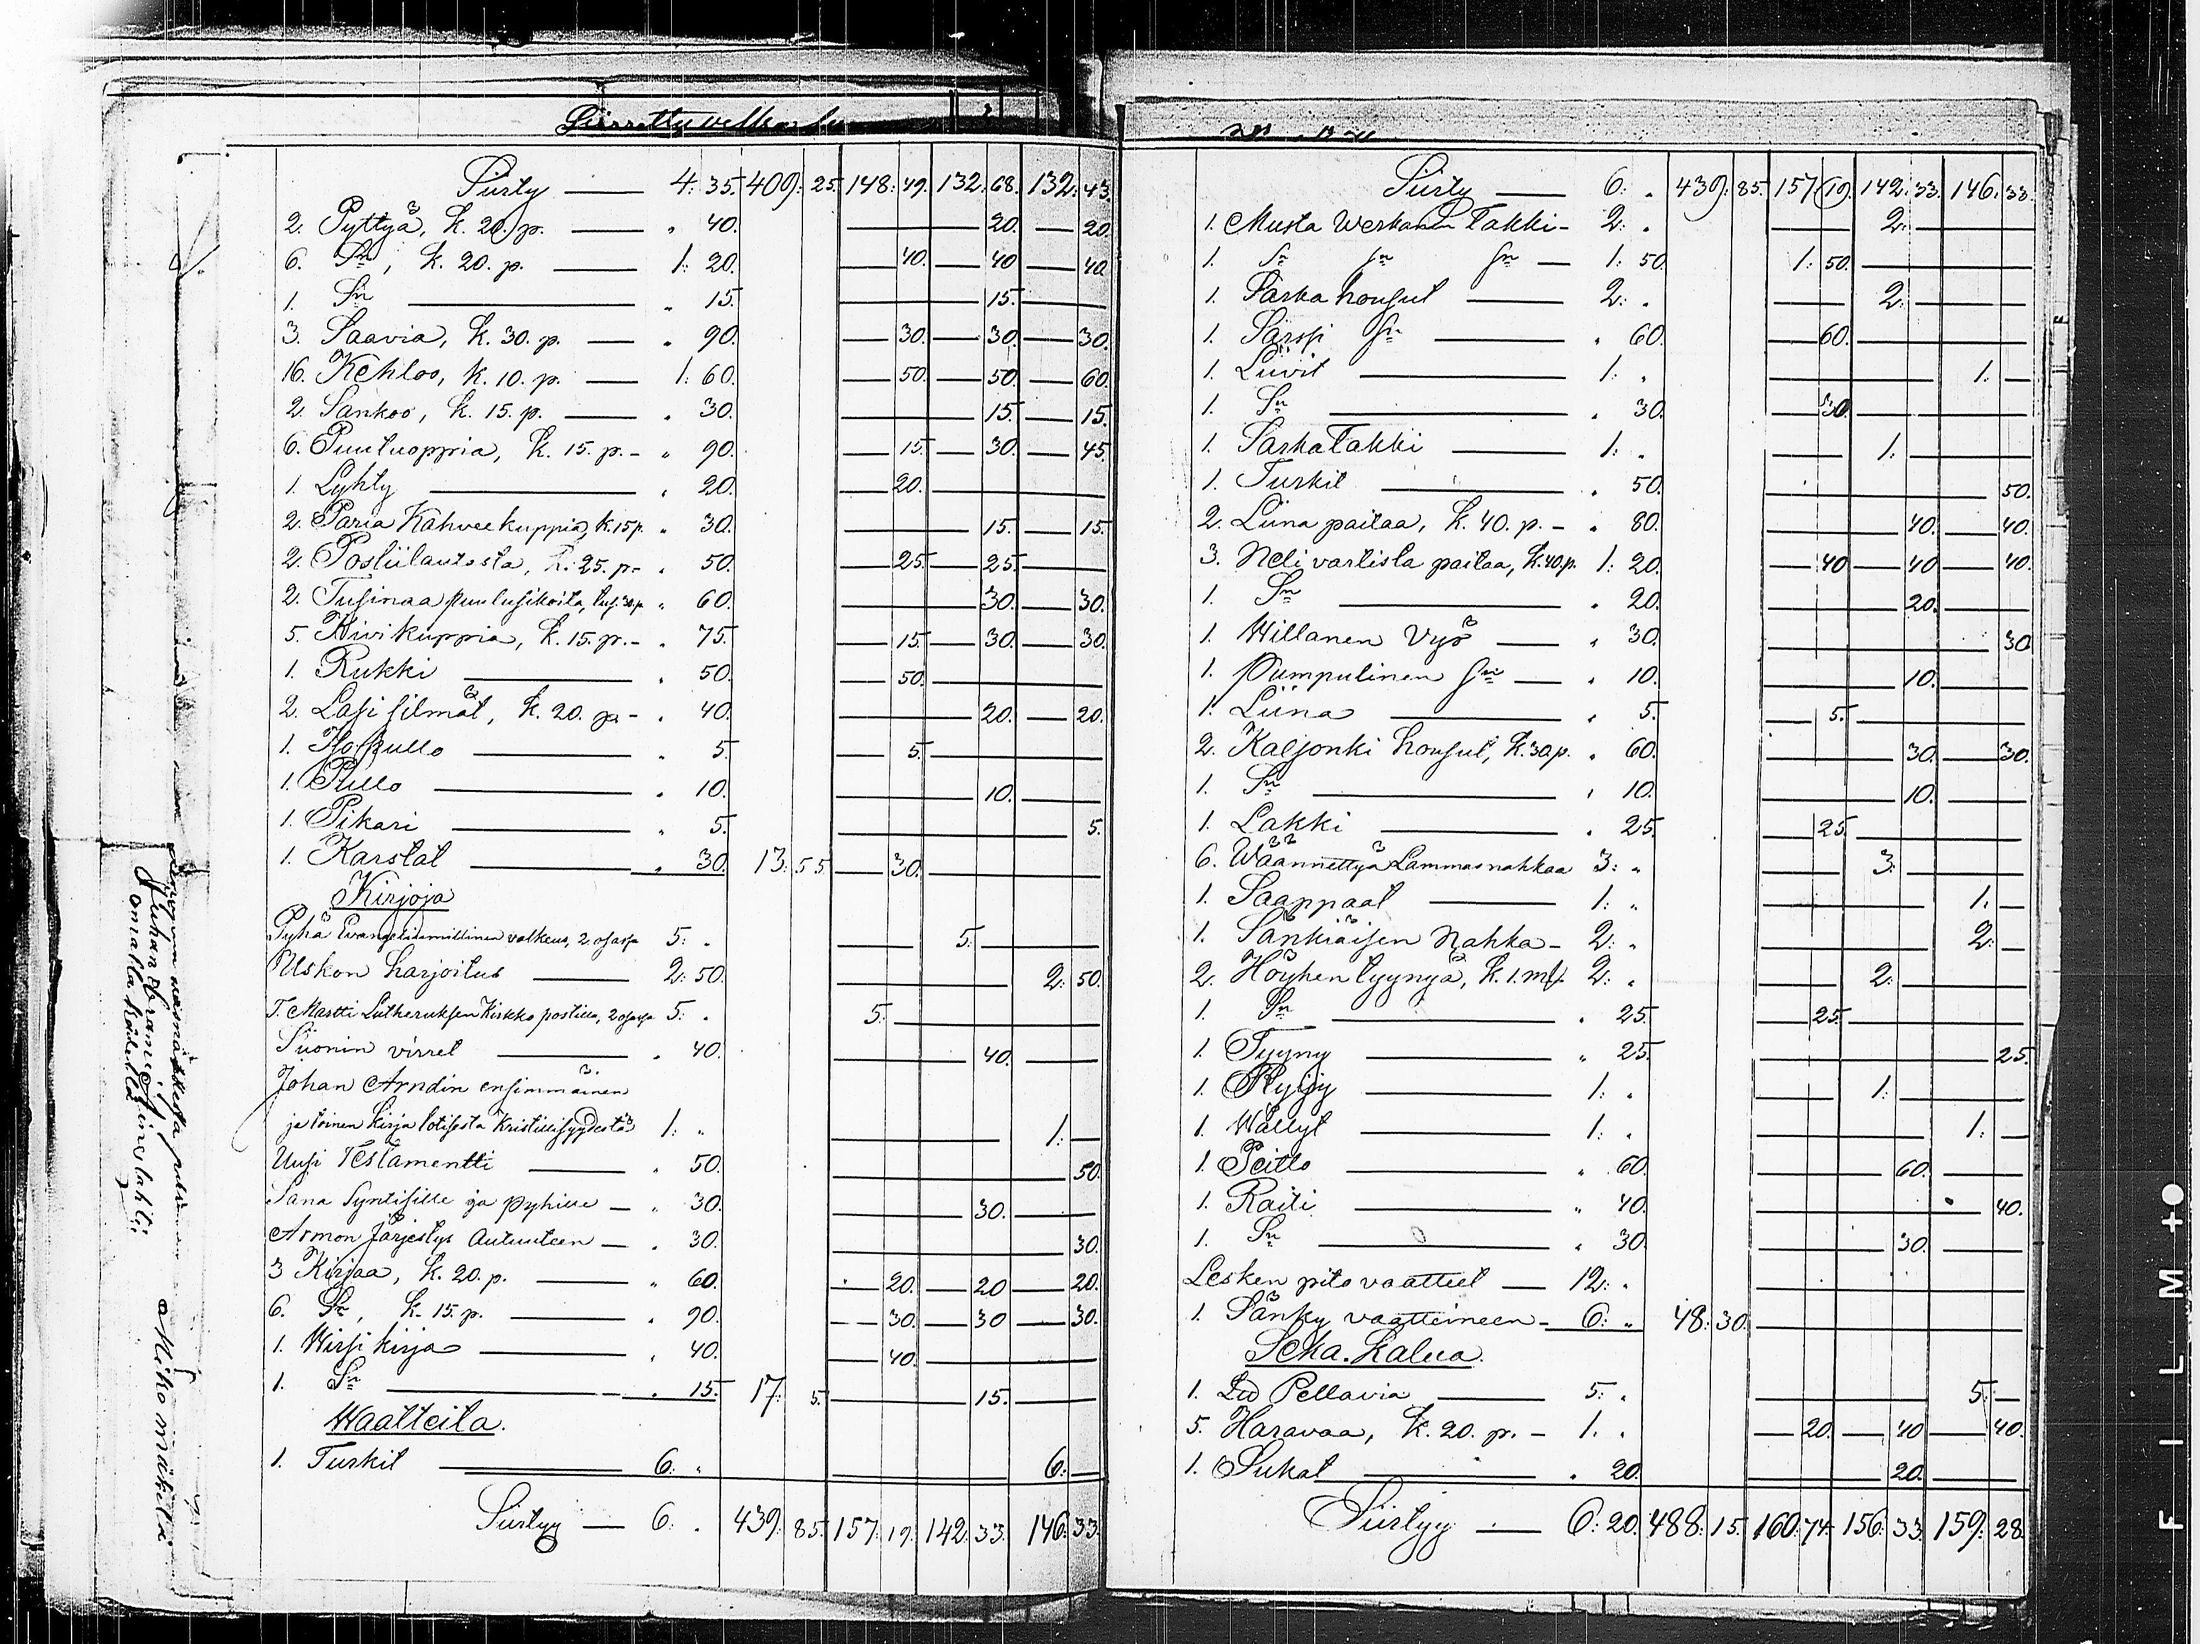 Siirty 4: 35. 409: 25. 148: 49. 132: 68. 132: 43.
2. Pyttyä, k. 20. p. „ 40. 20. 20.
6. Dn, k. 20. p. 1: 20. 40. 40 40.
1. Dn „ 15. 15.
3. Saavia, k. 30. p. „ 90. 30. 30. 30.
16. Kehloo, k. 10. p. 1: 60. 50. 50. 60.
2. Sankoo, k. 15. p. „ 30. 15. 15.
6. Puutuoppia, k. 15. p. „ 90. 15. 30. 45.
1. Lyhty „ 20. 20.
2. Paria Kahveekuppia, k. 15 p. „ 30. 15. 15.
2. Postiilautosta, k. 25. p. „ 50. 25. 25.
2. Tusinaa puulusikoita, tus. 30 p. „ 60. 30. 30.
5. Kivikuppia, k. 15. p. „ 75. 15. 30. 30.
1. Rukki „ 50. 50.
2. Lasisilmät, k. 20. p. „ 40. 20. 20.
1. Iso pullo „ 5. 5.
1. Pullo „ 10. 10.
1. Pikari „ 5. 5.
1. Karstat „ 30. 13: 55. 30.
Kirjoja
Pyhä Evangeliumillinen valkeus, 2 osassa 5: „ 5:
Uskon harjoitus 2: 50. 2: 50.
T. Martti Lutheruksen Kirkko postilla, 2 osassa 5: „ 5:
Siionin virret „ 40. 40.
Johan Arndin ensimmäinen
ja toinen kirja totisesta Kristillisyydestä 1: „ 1:
Uusi Testamentti „ 50. 50.
Sana Syntisille ja pyhille „ 30. 30.
Armon Järjestys Autuuteen „ 30. 30.
3 Kirjaa, k. 20. p. „ 60. 20. 20 20.
6. Dn, k. 15. p. „ 90. 30. 30 30.
1. Wirsikirja „ 40. 40.
1. Dn „ 15. 17: 5. 15.
Waatteita.
1. Turkit 6: „ 6:
Siirtyy 6: „ 439: 85. 157: 19. 142: 33. 146: 33.
Siirty 6: „ 439: 85. 157: 19. 142: 33. 146: 33.
1. Musta Werkanen Takki 2: „ 2:
1. Dn Dn Dn 1: 50. 1: 50.
1. Sarka housut 2: „ 2:
1. Sarssi Dn „ 60. 60.
1. Liivit 1: „ 1:
1. Dn „ 30. 30.
1. Sarka Takki 1: „ 1:
1. Turkit „ 50. 50.
2. Liina paitaa, k. 40. p. „ 80. 40. 40.
3. Nelivartista paitaa, k. 40 p. 1: 20. 40 40 40.
1. Dn „ 20. 20.
1. Willanen Vyö „ 30. 30
1. Pumpulinen Dn „ 10. 10.
1. Liina „ 5. 5.
2. Kaljonki housut, k. 30 p. „ 60. 30. 30.
1. Dn „ 10. 10.
1. Lakki „ 25. 25.
6. Wäännettyä Lammasnahkaa 3: „ 3:
1. Saappaat 1: „ 1:
1. Sänkiäisen Nahka 2: „ 2:
2. Höyhen tyynyä, k. 1. mk 2: „ 2:
1. Dn „ 25. 25.
1. Tyyny „ 25. 25.
1. Ryijy 1: „ 1:
1. Wällyt 1: „ 1:
1. Peitto „ 60. 60.
1. Raiti „ 40. 40.
1. Dn „ 30. 30.
Lesken pitovaatteet 12: „
1. Sänky vaatteineen 6: „ 48: 30.
Seka. kalua.
1. Pellavia 5: „ 5:
5. Haravaa, k. 20. p. 1. „ 20. 40 40.
1. Sukat „ 20. 20.
Siirtyy 6: 20. 488: 15. 160: 74. 156: 33. 159: 28.
omalla kädellä
F I L M